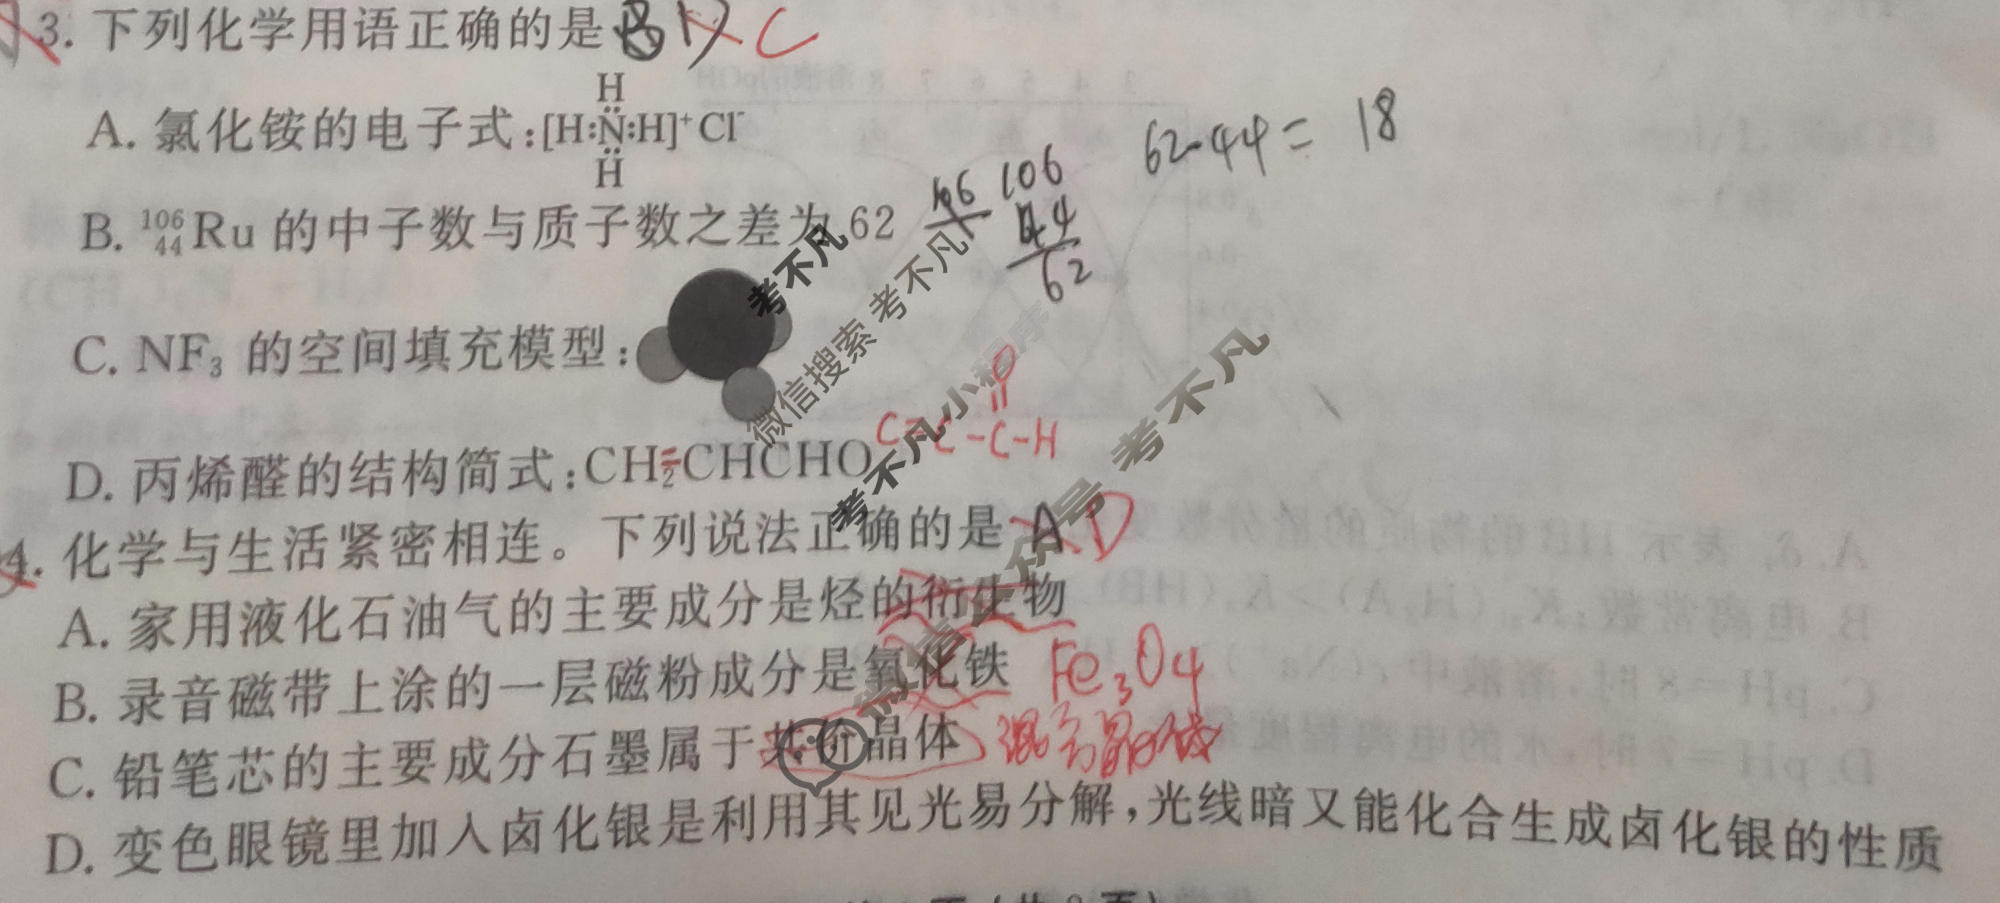 3. 下列化学用语正确的是 B D C
A. 氯化铵的电子式:[H:N:H]⁺Cl⁻
H
H
62-44= 18
B. ¹⁰⁶₄₄Ru 的中子数与质子数之差为 62
106
44
62
C. NF₃ 的空间填充模型:
D. 丙烯醛的结构简式:CH₂=CHCHO
C=C-C-H
O
4. 化学与生活紧密相连。下列说法正确的是 A D
A. 家用液化石油气的主要成分是烃的衍生物
B. 录音磁带上涂的一层磁粉成分是氧化铁 Fe₃O₄
C. 铅笔芯的主要成分石墨属于共价晶体 混合晶体
D. 变色眼镜里加入卤化银是利用其见光易分解,光线暗又能化合生成卤化银的性质
考不凡
微信搜索 考不凡
考不凡小程序
考不凡
A. δ 表示 HB 的物质的量分数
C. pH=8 时,溶液中
D. pH=7 时,水的电离程度